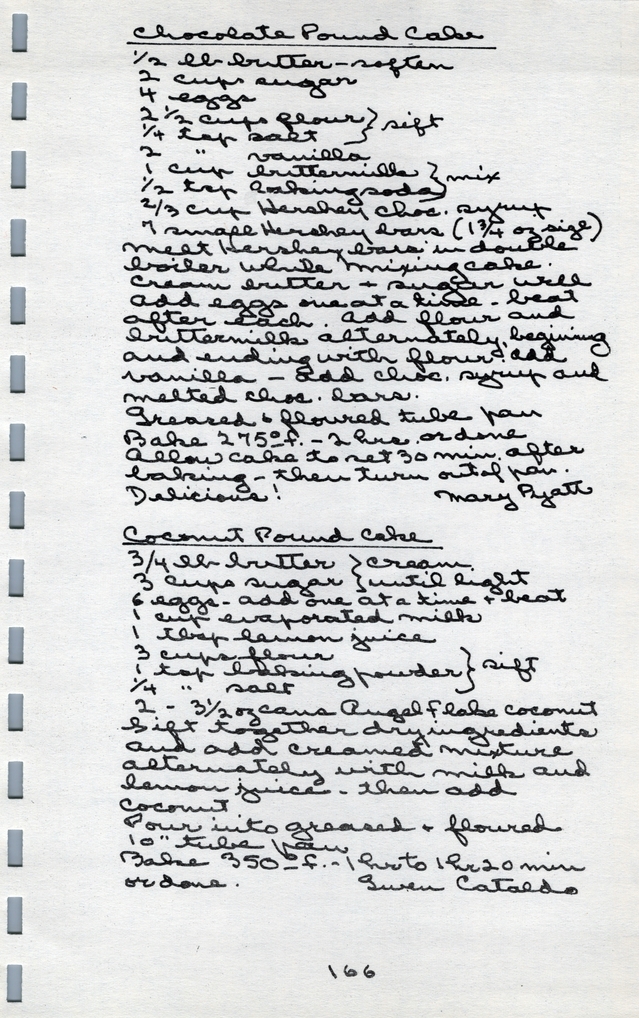 Chocolate Pound Cake
1/2 lb butter - soften
2 cups sugar
4 eggs
2 1/2 cups flour } sift
1/4 tsp salt
2 " vanilla
1 cup buttermilk } mix
1/2 tsp baking soda
2/3 cup Hershey choc. syrup
7 small Hershey bars (1 3/4 oz size)
melt Hershey bars in double
boiler while mixing cake.
Cream butter + sugar well
add eggs one at a time - beat
after each. Add flour and
buttermilk alternately, begining
and ending with flour. Add
vanilla - add choc. syrup and
melted choc. bars.
Greased & floured tube pan
Bake 275° f. - 2 hrs. or done
Allow cake to set 30 min. after
baking - then turn out of pan.
Delicious! Mary Pyatt
Coconut Pound Cake
3/4 lb butter } cream
3 cups sugar } until light
6 eggs - add one at a time + beat
1 cup evaporated milk
1 tbsp lemon juice
3 cups flour
1 tsp baking powder } sift
1/4 " salt
2 - 3 1/2 oz cans Angel Flake coconut
Sift together dry ingredients
and add creamed mixture
alternately with milk and
lemon juice - then add
coconut
Pour into greased + floured
10" tube pan
Bake 350° f. - 1 hr to 1 hr 20 min
or done. Gwen Cataldo
166